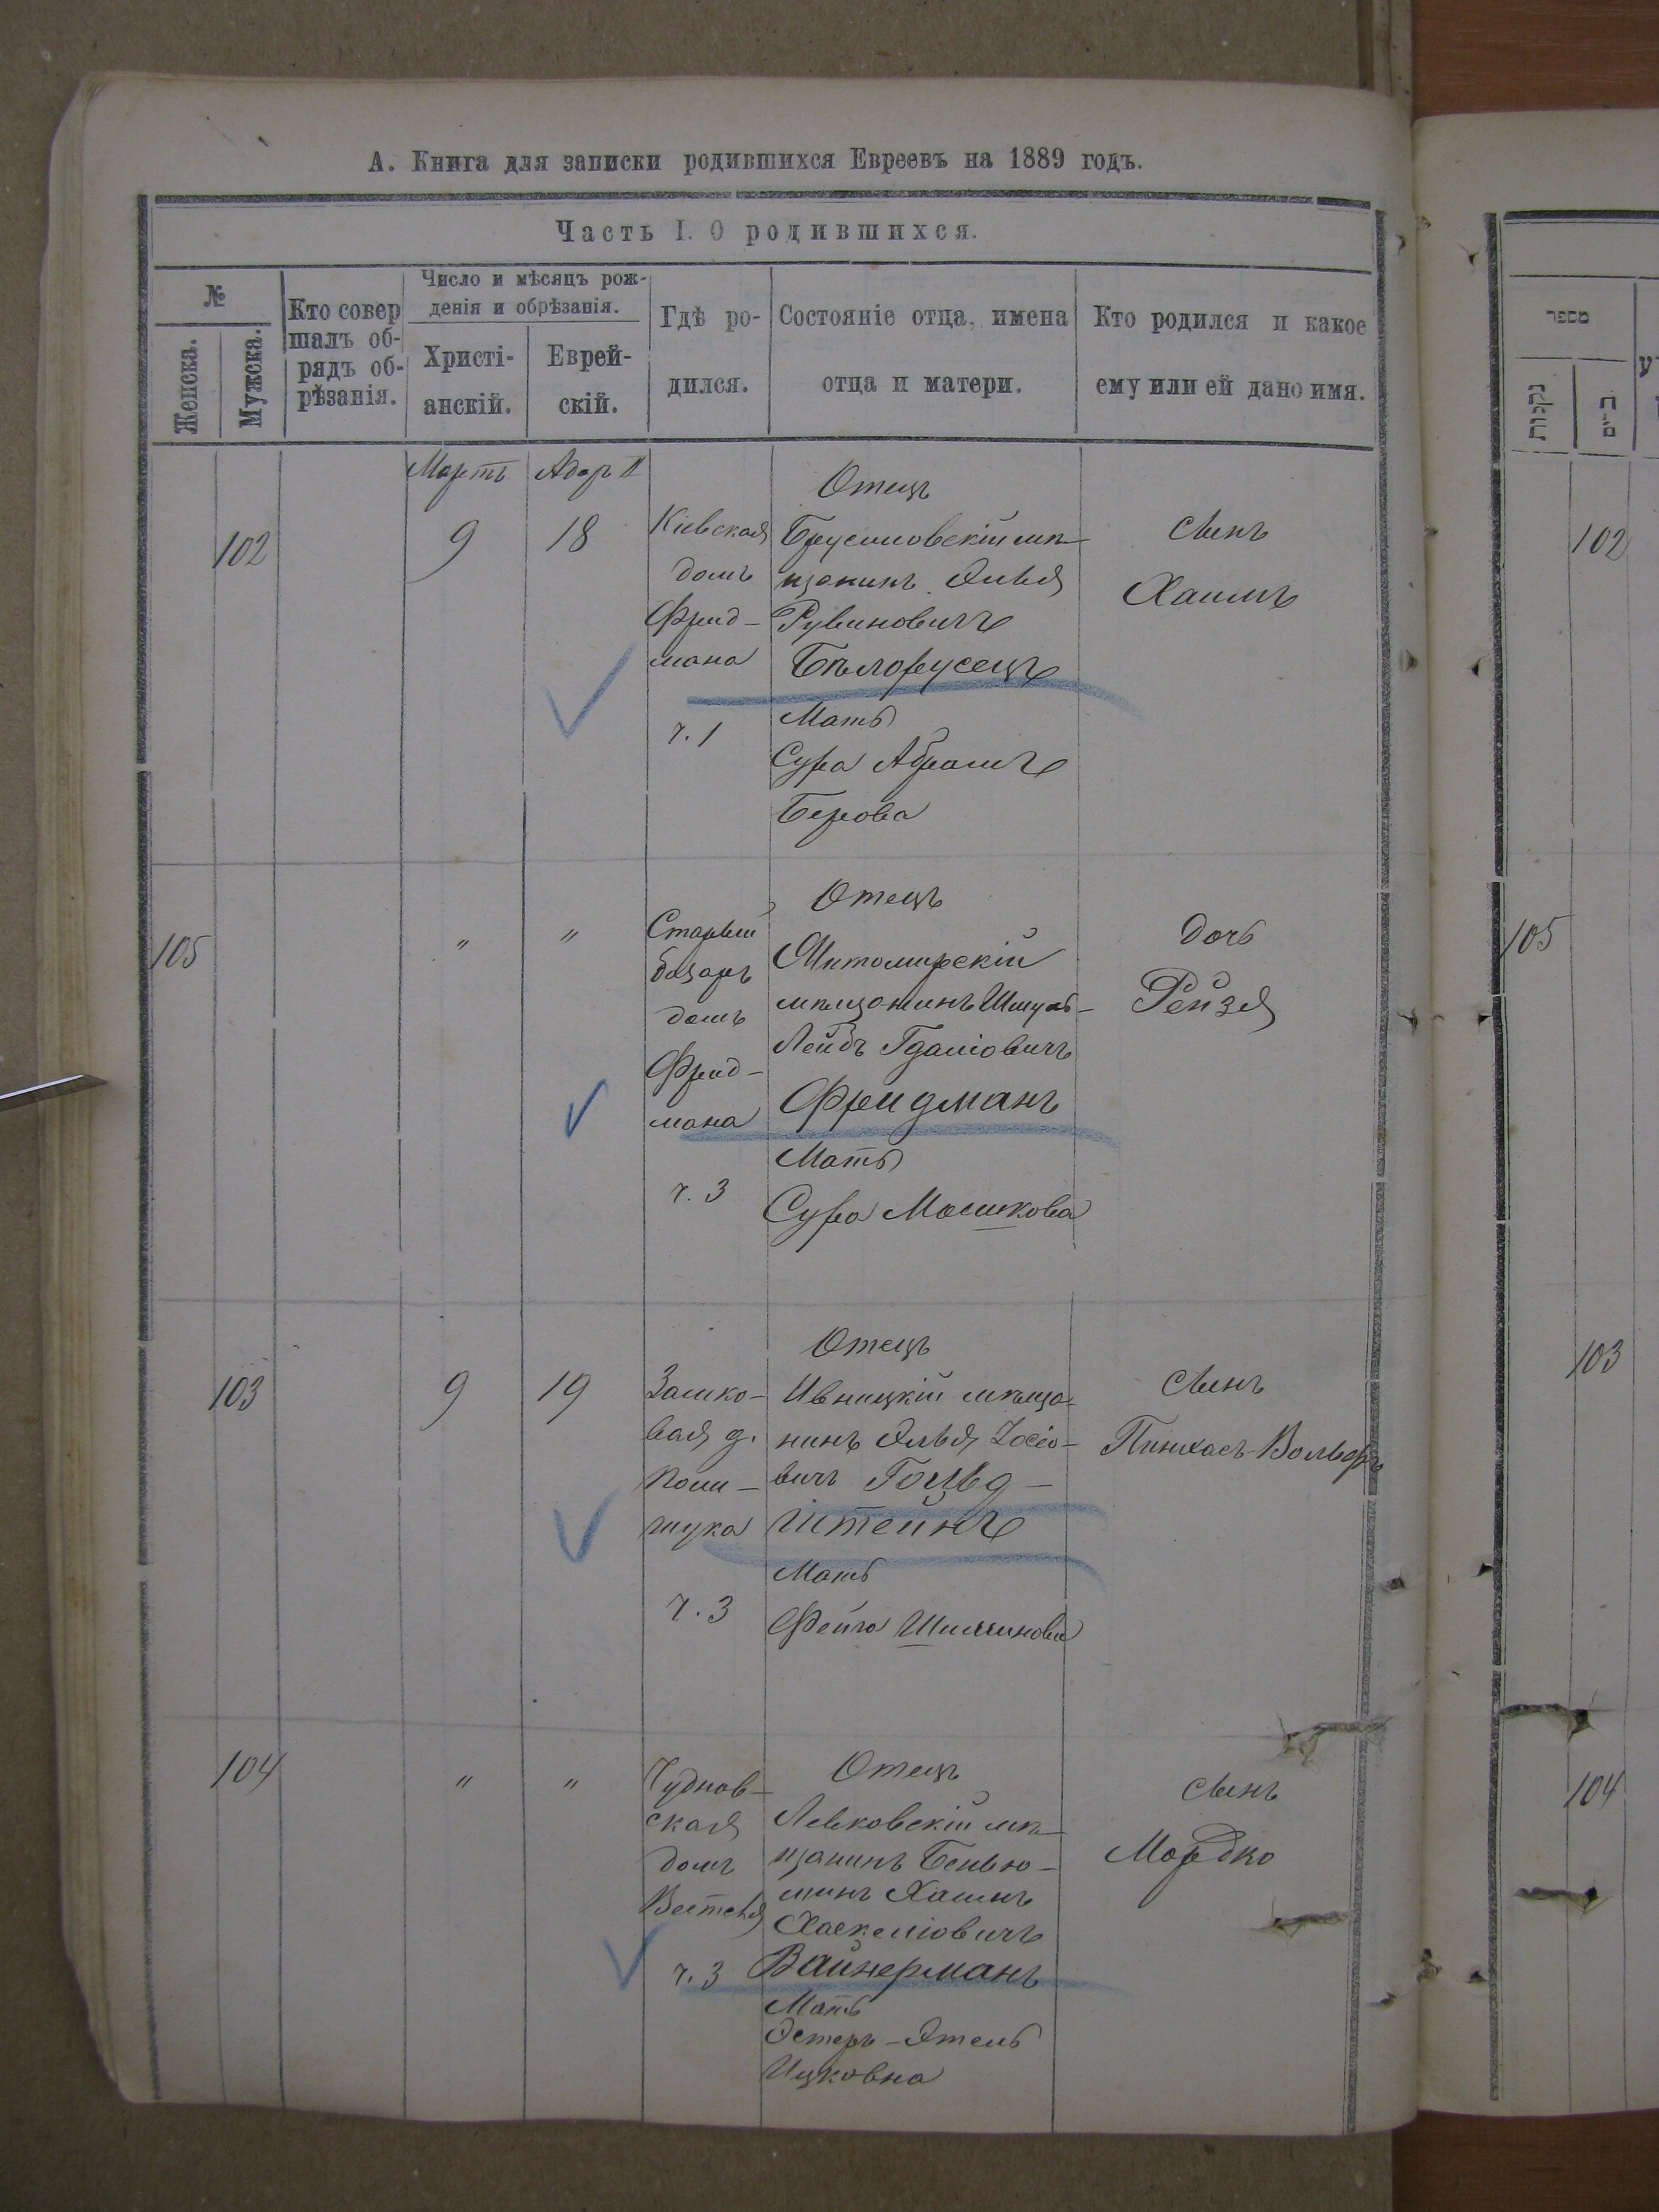 А. Книга для записки родившихся Евреевъ на 1889 годъ.
Часть I. О родившихся.
№
Женска.
Мужска.
Кто совер
шалъ об-
рядъ об-
рѣзанія.
Число и мѣсяцъ рож-
денія и обрѣзанія.
Христі-
анскій.
Еврей-
скій.
Гдѣ ро-
дился.
Состояніе отца, имена
отца и матери.
Кто родился и какое
ему или ей дано имя.
Мартъ
Адар II
102
9
18
Кіевская
домъ
Фрид-
мана
ч. 1
Отецъ
Брусиловскій мѣ-
щанинъ Эльья
Рувиновичъ
Бѣлорусецъ
Мать
Сура Абрамъ
Берова
Сынъ
Хаимъ
105
"
"
Старый
базаръ
домъ
Фрид-
мана
ч. 3
Отецъ
Житомирскій
мѣщанинъ Шмуль-
Лейбъ Гдаліовичъ
Фридманъ
Мать
Сура Мошкова
Дочь
Рейзя
103
9
19
Замко-
вая д.
Поли-
щука
ч. 3
Отецъ
Ивницкій мѣща-
нинъ Элья Іосіо-
вичъ Гольд-
штейнъ
Мать
Фейга Шимонова
Сынъ
Пинхасъ-Вольфъ
104
"
"
Чуднов-
ская
домъ
ч. 3
Отецъ
Левковскій мѣ-
щанинъ Бенью-
минъ Хаимъ
Хаскеліовичъ
Вайнерманъ
Мать
Эстеръ-Этель
Ицковна
Сынъ
Мордко
מספר
נקבות
102
105
103
104